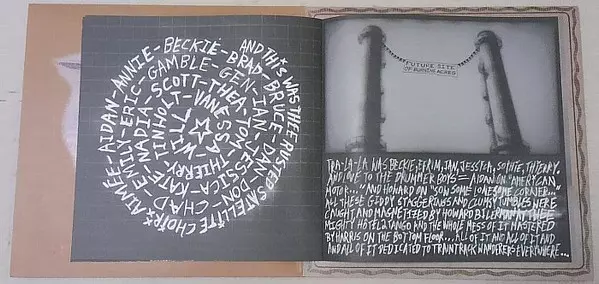 AND THIS WAS THEE RUSTED SATELLITE CHOIR: AIMÉE-AIDAN-ANNIE-BECKIE-BRAD-BRUCE-DAN-DON-CHAD-EMILY-ERIC-GAMBLE-GEN-IAN-JESSICA-KATE-LENA-NADIA-SCOTT-THEA-TOM-THIERRY-TINHOLT-VANESSA-WILL
FUTURE SITE
OF BURNING ACRES
TRA-LA-LA WAS BECKIE, EFRIM, IAN, JESSICA, SOPHIE, THIERRY.
AND LOVE TO THE DRUMMER BOYS = AIDAN ON "AMERICAN
MOTOR..." AND HOWARD ON "SOW SOME LONESOME CORNER..."
ALL THESE GIDDY STAGGERINGS AND CLUMSY TUMBLES WERE
CAUGHT AND MAGNETIZED BY HOWARD BILERMAN AT THEE
MIGHTY HOTEL2TANGO AND THE WHOLE MESS OF IT MASTERED
BY HARRIS ON THE BOTTOM FLOOR... ALL OF IT AND ALL OF IT AND
AND ALL OF IT DEDICATED TO TRAINTRACK WANDERERS EVERYWHERE...